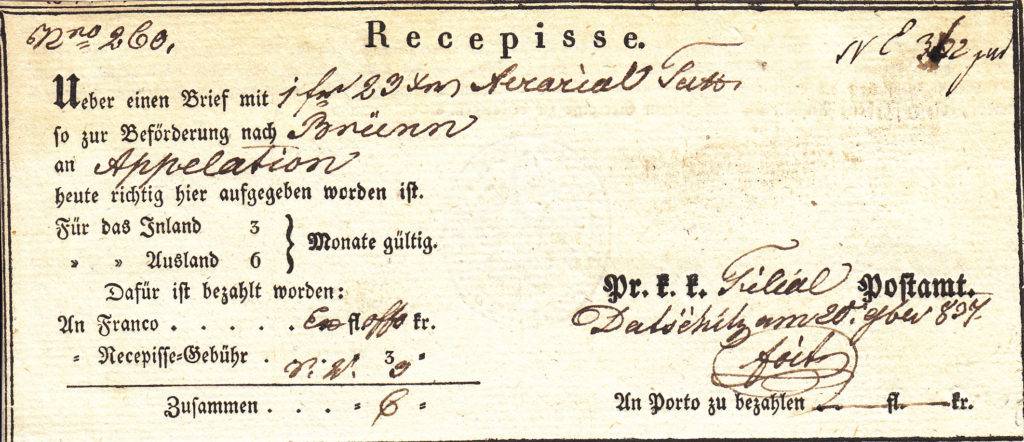 Nro 260. Recepisse.
Ueber einen Brief mit 1 fr 23 xr Aerarial
so zur Beförderung nach Brünn
an Appelation
heute richtig hier aufgegeben worden ist.
Für das Inland 3
" " Ausland 6 } Monate gültig.
Dafür ist bezahlt worden:
Pr. k. k. Filial Postamt.
An Franco . . . . . fl. kr.
Datschitz am 20. 9ber 837
" Recepisse-Gebühr . 3 "
Zusammen . . . . " 6 "
An Porto zu bezahlen — fl. — kr.